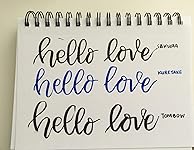 hello love SAKURA
hello love KURETAKE
hello love TOMBOW